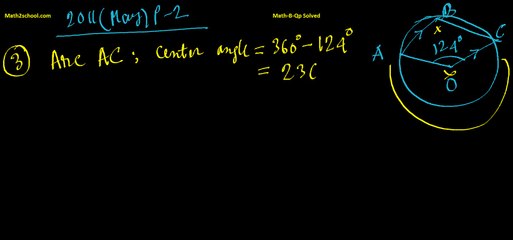 Math2school.com
Math-B-Qp Solved
2011(May) P-2
3 Arc AC; center angle = 360° - 124°
= 23
A
B
x
C
124°
O